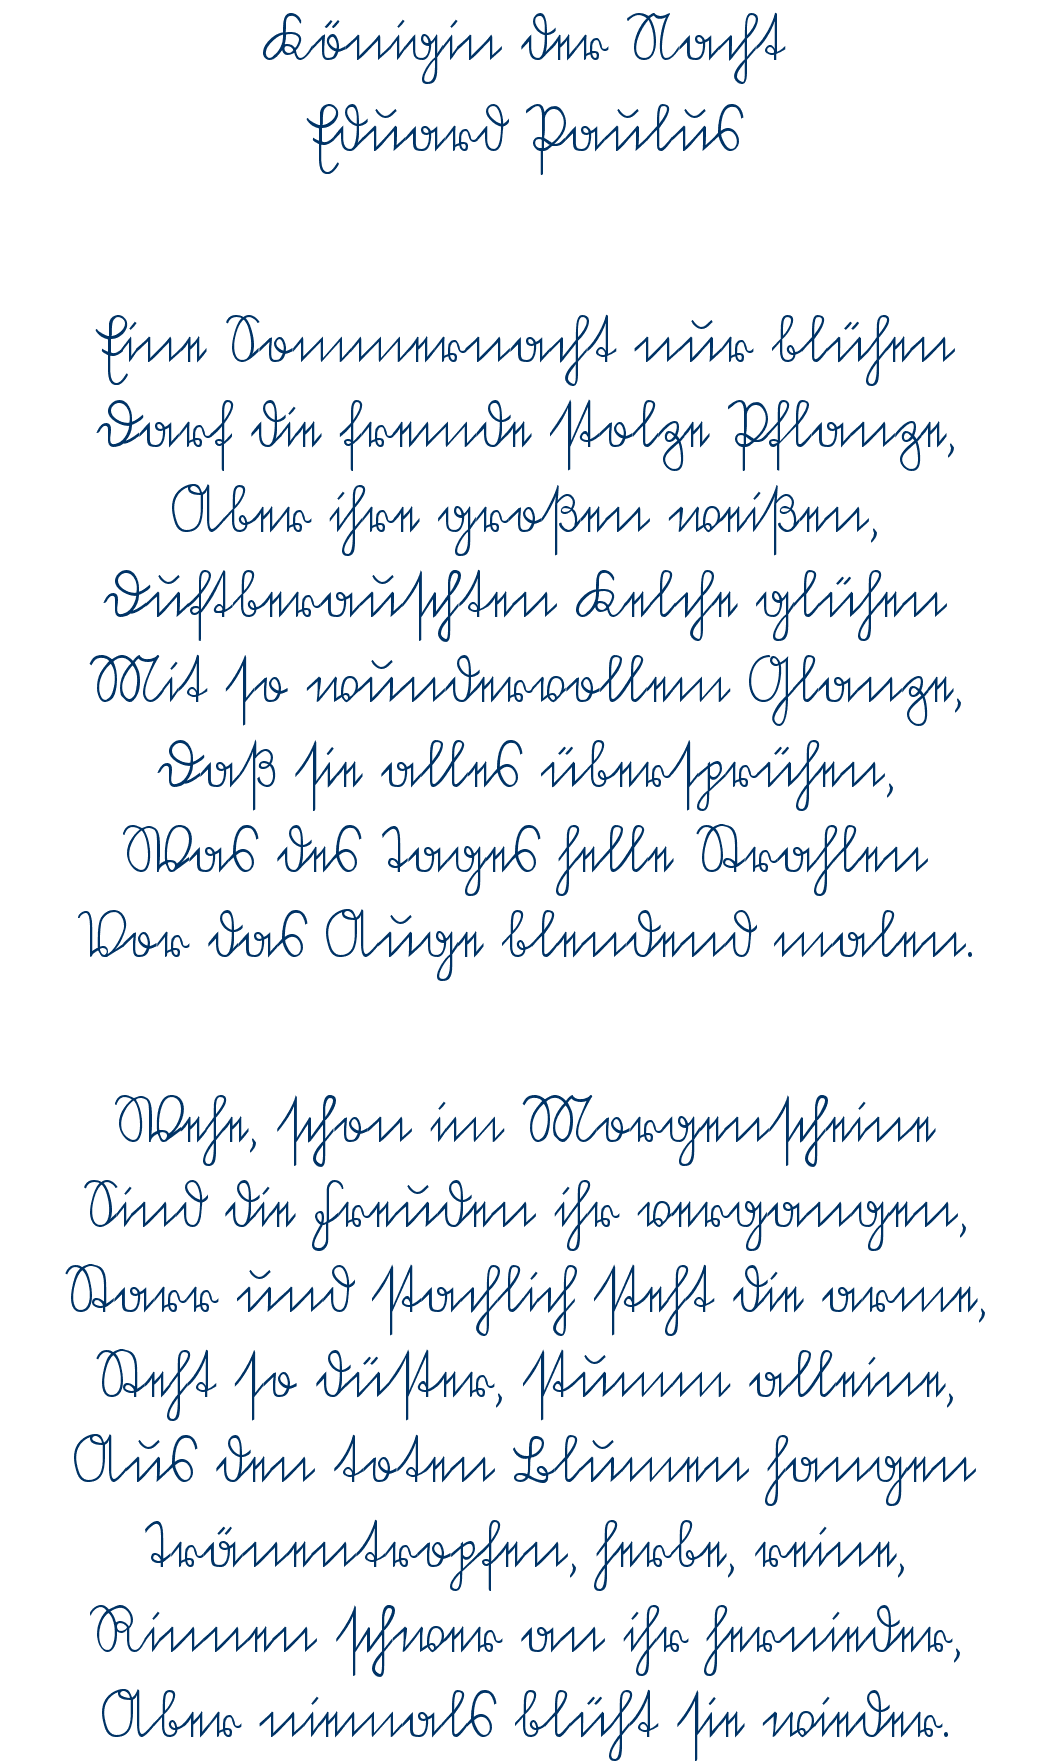 Königin der Nacht
Eduard Paulus
Eine Sommernacht nur blühen
Darf die fremde stolze Pflanze,
Aber ihre großen weißen,
Duftberauschten Kelche glühen
Mit so wundervollem Glanze,
Daß sie alles übersprühen,
Was des Tages helle Strahlen
Vor das Auge blendend malen.
Wehe, schon im Morgenscheine
Sind die Freuden ihr vergangen,
Starr und stachlich steht die arme,
Steht so düster, stumm alleine,
Aus den toten Blumen hangen
Tränentropfen, herbe, reine,
Rinnen schwer an ihr hernieder,
Aber niemals blüht sie wieder.